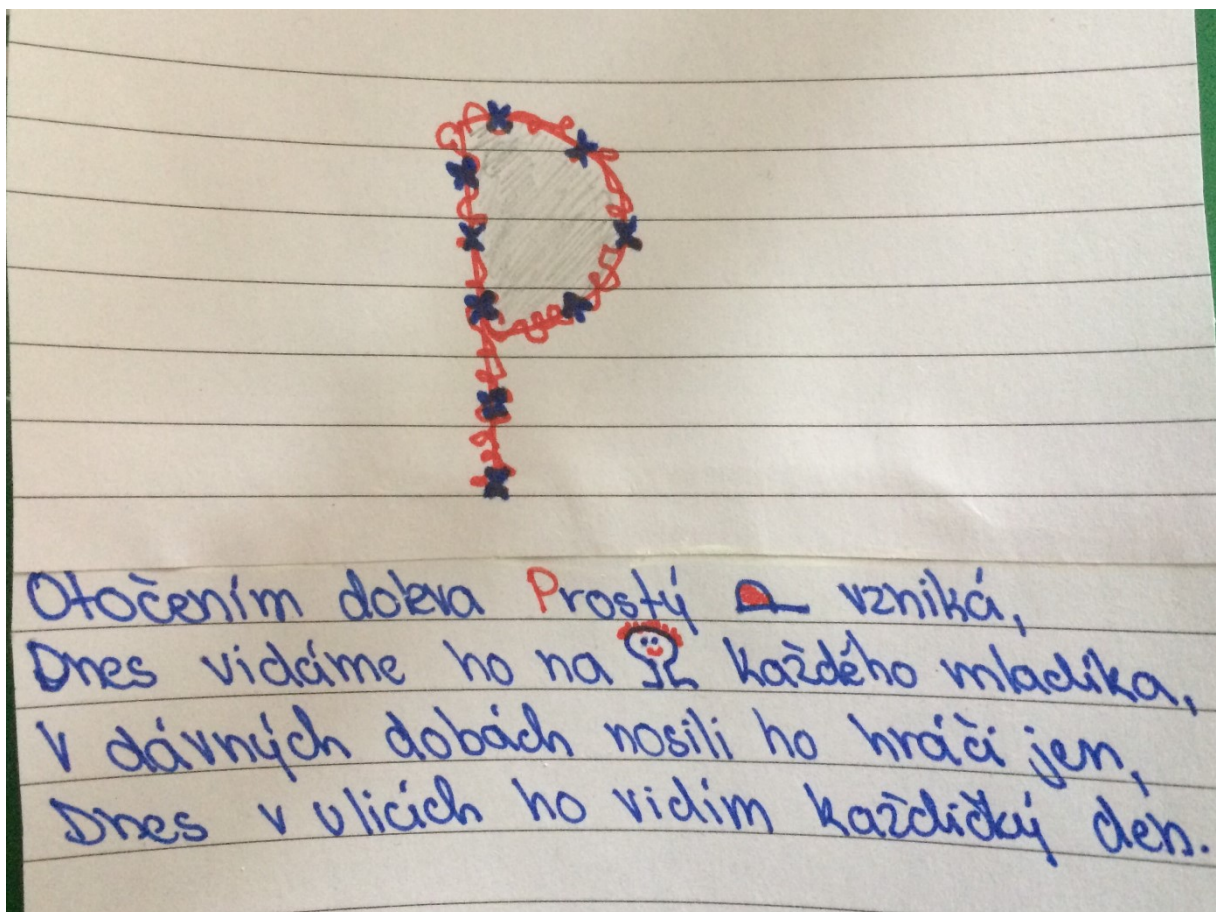 P
Otočením doleva Prostý vzniká,
Dnes vidáme ho na každého mladíka,
V dávných dobách nosili ho hráči jen,
Dnes v ulicích ho vidím každičký den.